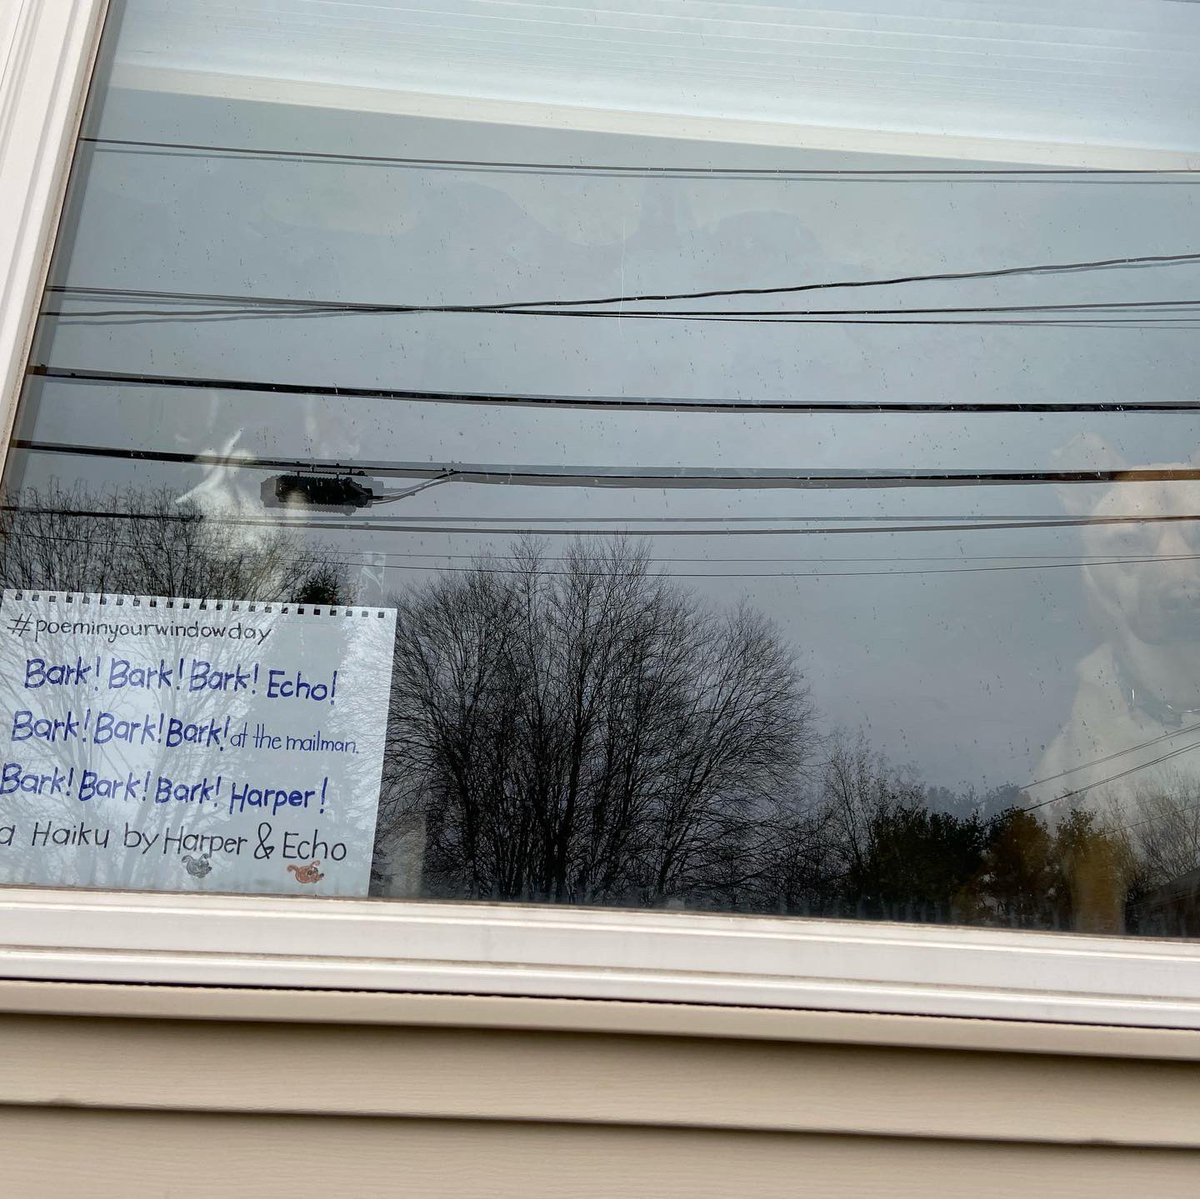 #poeminyourwindowday
Bark! Bark! Bark! Echo!
Bark! Bark! Bark! at the mailman.
Bark! Bark! Bark! Harper!
a Haiku by Harper & Echo